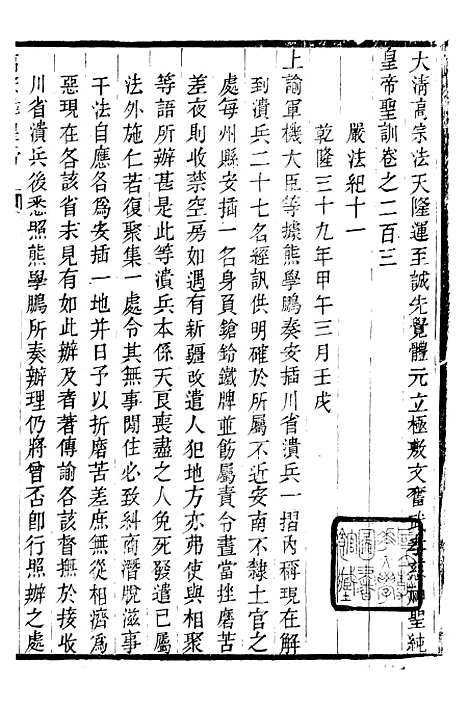 大淸高宗法天隆運至誠先覺體元立極敷文奮武孝慈神聖純
皇帝聖訓卷之二百三
嚴法紀十一
乾隆三十九年甲午三月壬戌
上諭軍機大臣等據熊學鵬奏安插川省潰兵一摺內稱現在解
到潰兵二十七名經訊供明確於所屬不近安南不隸土官之
處每州縣安插一名身負鎗鈴鐵牌並飭屬責令晝當挫磨苦
差夜則收禁空房如遇有新疆改遣人犯地方亦弗使與相聚
等語所辦甚是此等潰兵本係天良喪盡之人免死發遣已屬
法外施仁若復聚集一處令其無事閒住必致糾商潛脫滋事
干法自應各爲安插一地幷日以折磨苦差庶無從相濟爲
惡現在各該省未見有如此辦及者著傳諭各該督撫於收到
川省潰兵後悉照熊學鵬所奏辦理仍將曾否卽行照辦之處